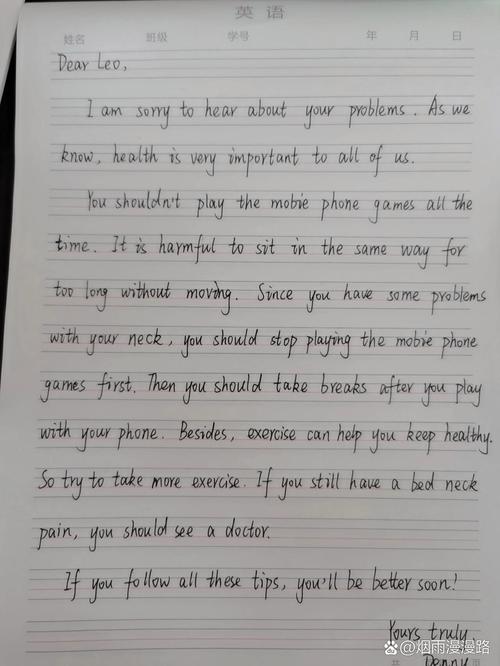 英语
姓名 班级 学号 年 月 日
Dear Leo,
I am sorry to hear about your problems. As we
know, health is very important to all of us.
You shouldn't play the mobie phone games all the
time. It is harmful to sit in the same way for
too long without moving. Since you have some problems
with your neck, you should stop playing the mobie phone
games first. Then you should take breaks after you play
with your phone. Besides, exercise can help you keep healthy.
So try to take more exercise. If you still have a bed neck
pain, you should see a doctor.
If you follow all these tips, you'll be better soon!
Yours truly
Denny
@烟雨漫漫路